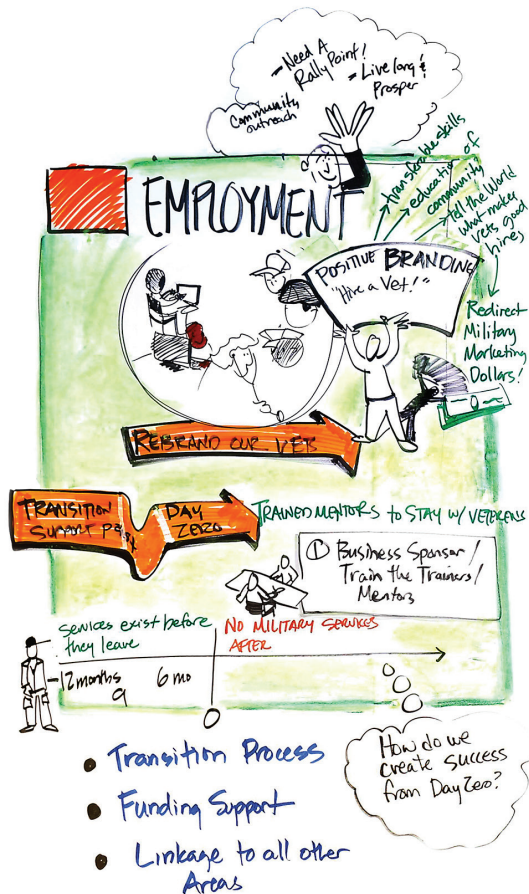 - Need A
Rally Point!
- Live long &
Prosper
Community
outreach
EMPLOYMENT
transferable skills
education of
community
tell the World
what makes
Vets good
hires
POSITIVE BRANDING
"Hire a Vet!"
Redirect
Military
Marketing
Dollars!
REBRAND OUR VETS
TRANSITION
SUPPORT
DAY
ZERO
TRAINED MENTORS to STAY W/ VETERENS
① Business Sponsor/
Train the Trainers/
Mentors
services exist before
they leave
NO MILITARY SERVICES
AFTER
-12 months
9
6 mo
0
How do we
create success
from Day Zero?
• Transition Process
• Funding Support
• Linkage to all other
Areas